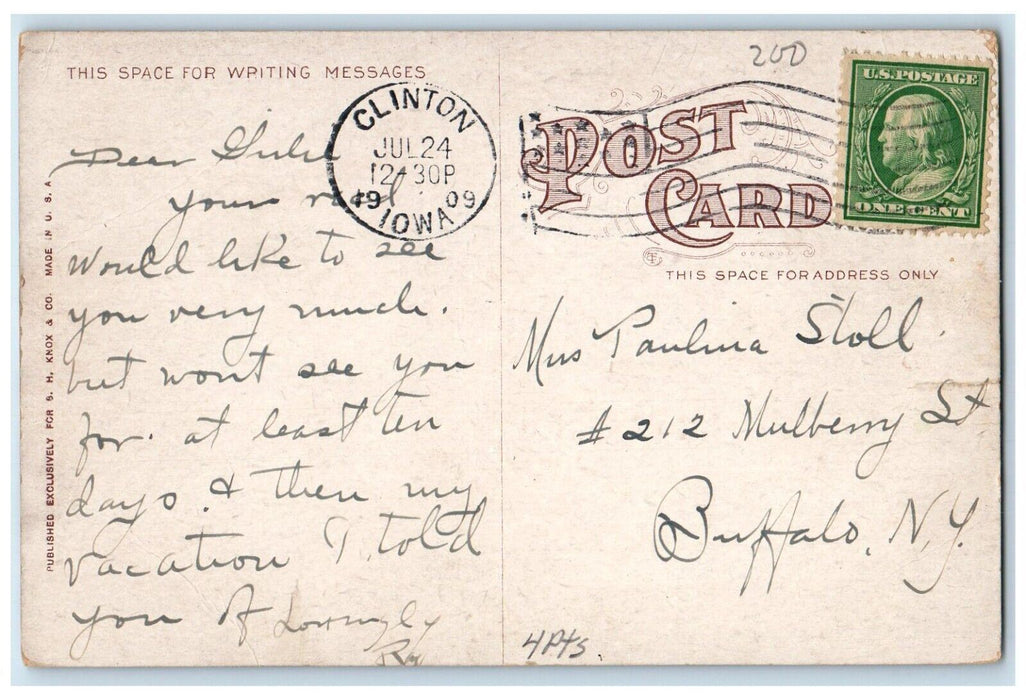 THIS SPACE FOR WRITING MESSAGES
Dear
your rec'd
would like to see
you very much.
but wont see you
for at least ten
days. & then my
vacation I told
you of Lovingly
PUBLISHED EXCLUSIVELY FOR S. H. KNOX & CO. MADE IN U. S. A.
CLINTON
JUL 24
12-30P
1909
IOWA
200
POST
CARD
U.S. POSTAGE
ONE CENT
THIS SPACE FOR ADDRESS ONLY
Miss Paulina Stoll
# 212 Mulberry St
Buffalo, N.Y.
4Pts.